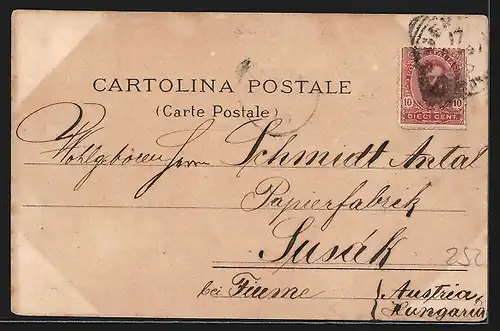 CARTOLINA POSTALE
(Carte Postale)
10 10
DIECI CENT.
17
Wohlgeboren Herrn Schmidt Antal
Papierfabrek
Susák
bei Fiume
(Austria,
Hungaria
252